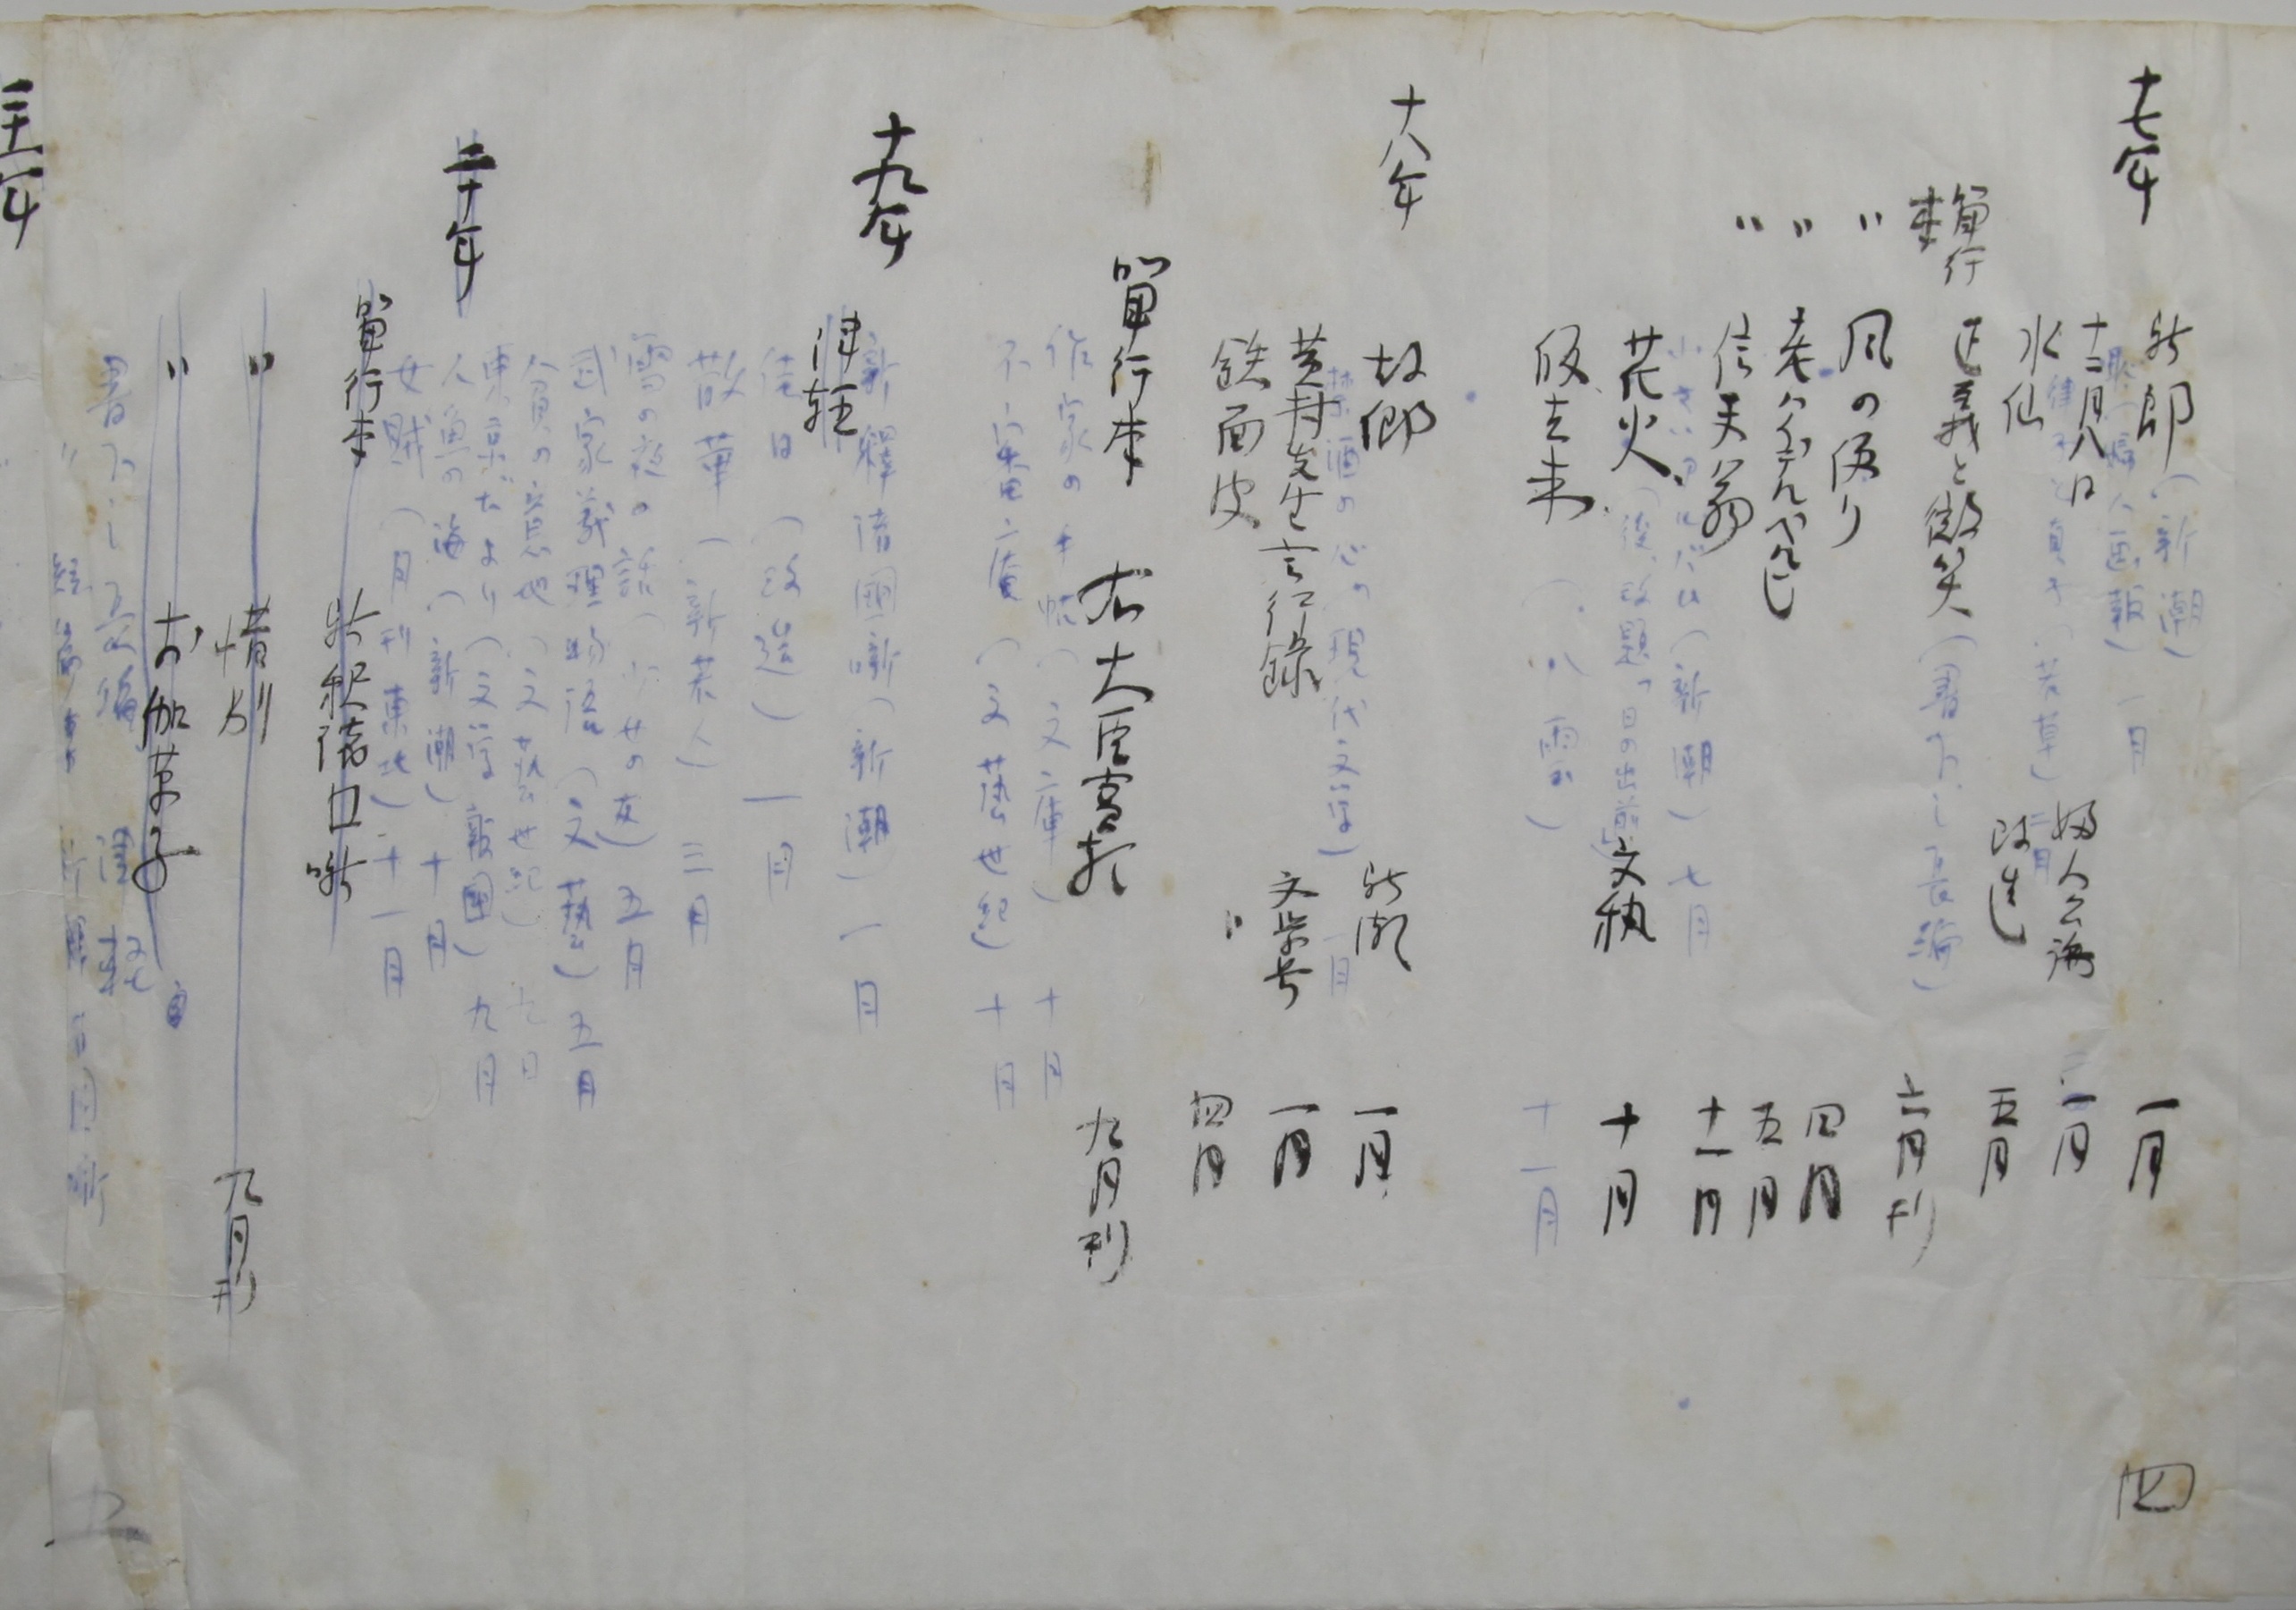 十七年
新郎(新潮) 一月
恥(婦人画報) 一月
十二月八日 婦人公論 一月
律子と貞子(若草) 二月
水仙 改造 五月
単行本 正義と微笑(書下し長編) 六月刊
〃 風の便り 四月
〃 老ハイデルベルヒ 五月
〃 信天翁 十一月
小さいアルバム(新潮) 七月
花火(後、改題「日の出前」) 文執 十月
帰去来(八雲) 十一月
十八年
故郷 新潮 一月
禁酒の心(現代文学) 一月
黄村先生言行録 文学界 一月
鉄面皮 〃 四月
単行本 右大臣実朝 九月刊
作家の手帖(文庫) 十月
不審庵(文藝世紀) 十月
十九年
新釋諸國噺(新潮) 一月
津軽
佳日(改造) 一月
散華(新若人) 三月
雪の夜の話(少女の友) 五月
武家義理物語(文藝) 五月
貧の意地(文藝世紀) 九月
東京だより(文学報國) 九月
人魚の海(新潮) 十月
女賊(月刊東北) 十一月
二十年
単行本 新釈諸国噺
〃 惜別 九月刊
〃 お伽草子
書下し長編
二十一年
四
五